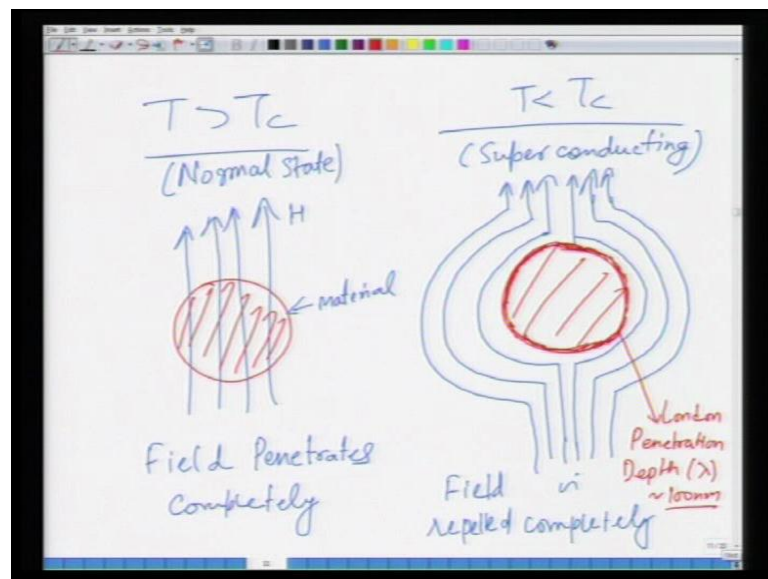 File Edit View Insert Actions Tools Help
T > Tc
(Normal State)
H
← material
Field Penetrates
Completely
T < Tc
(Super conducting)
London
Penetration
Depth (λ)
~100nm
Field is
repelled completely